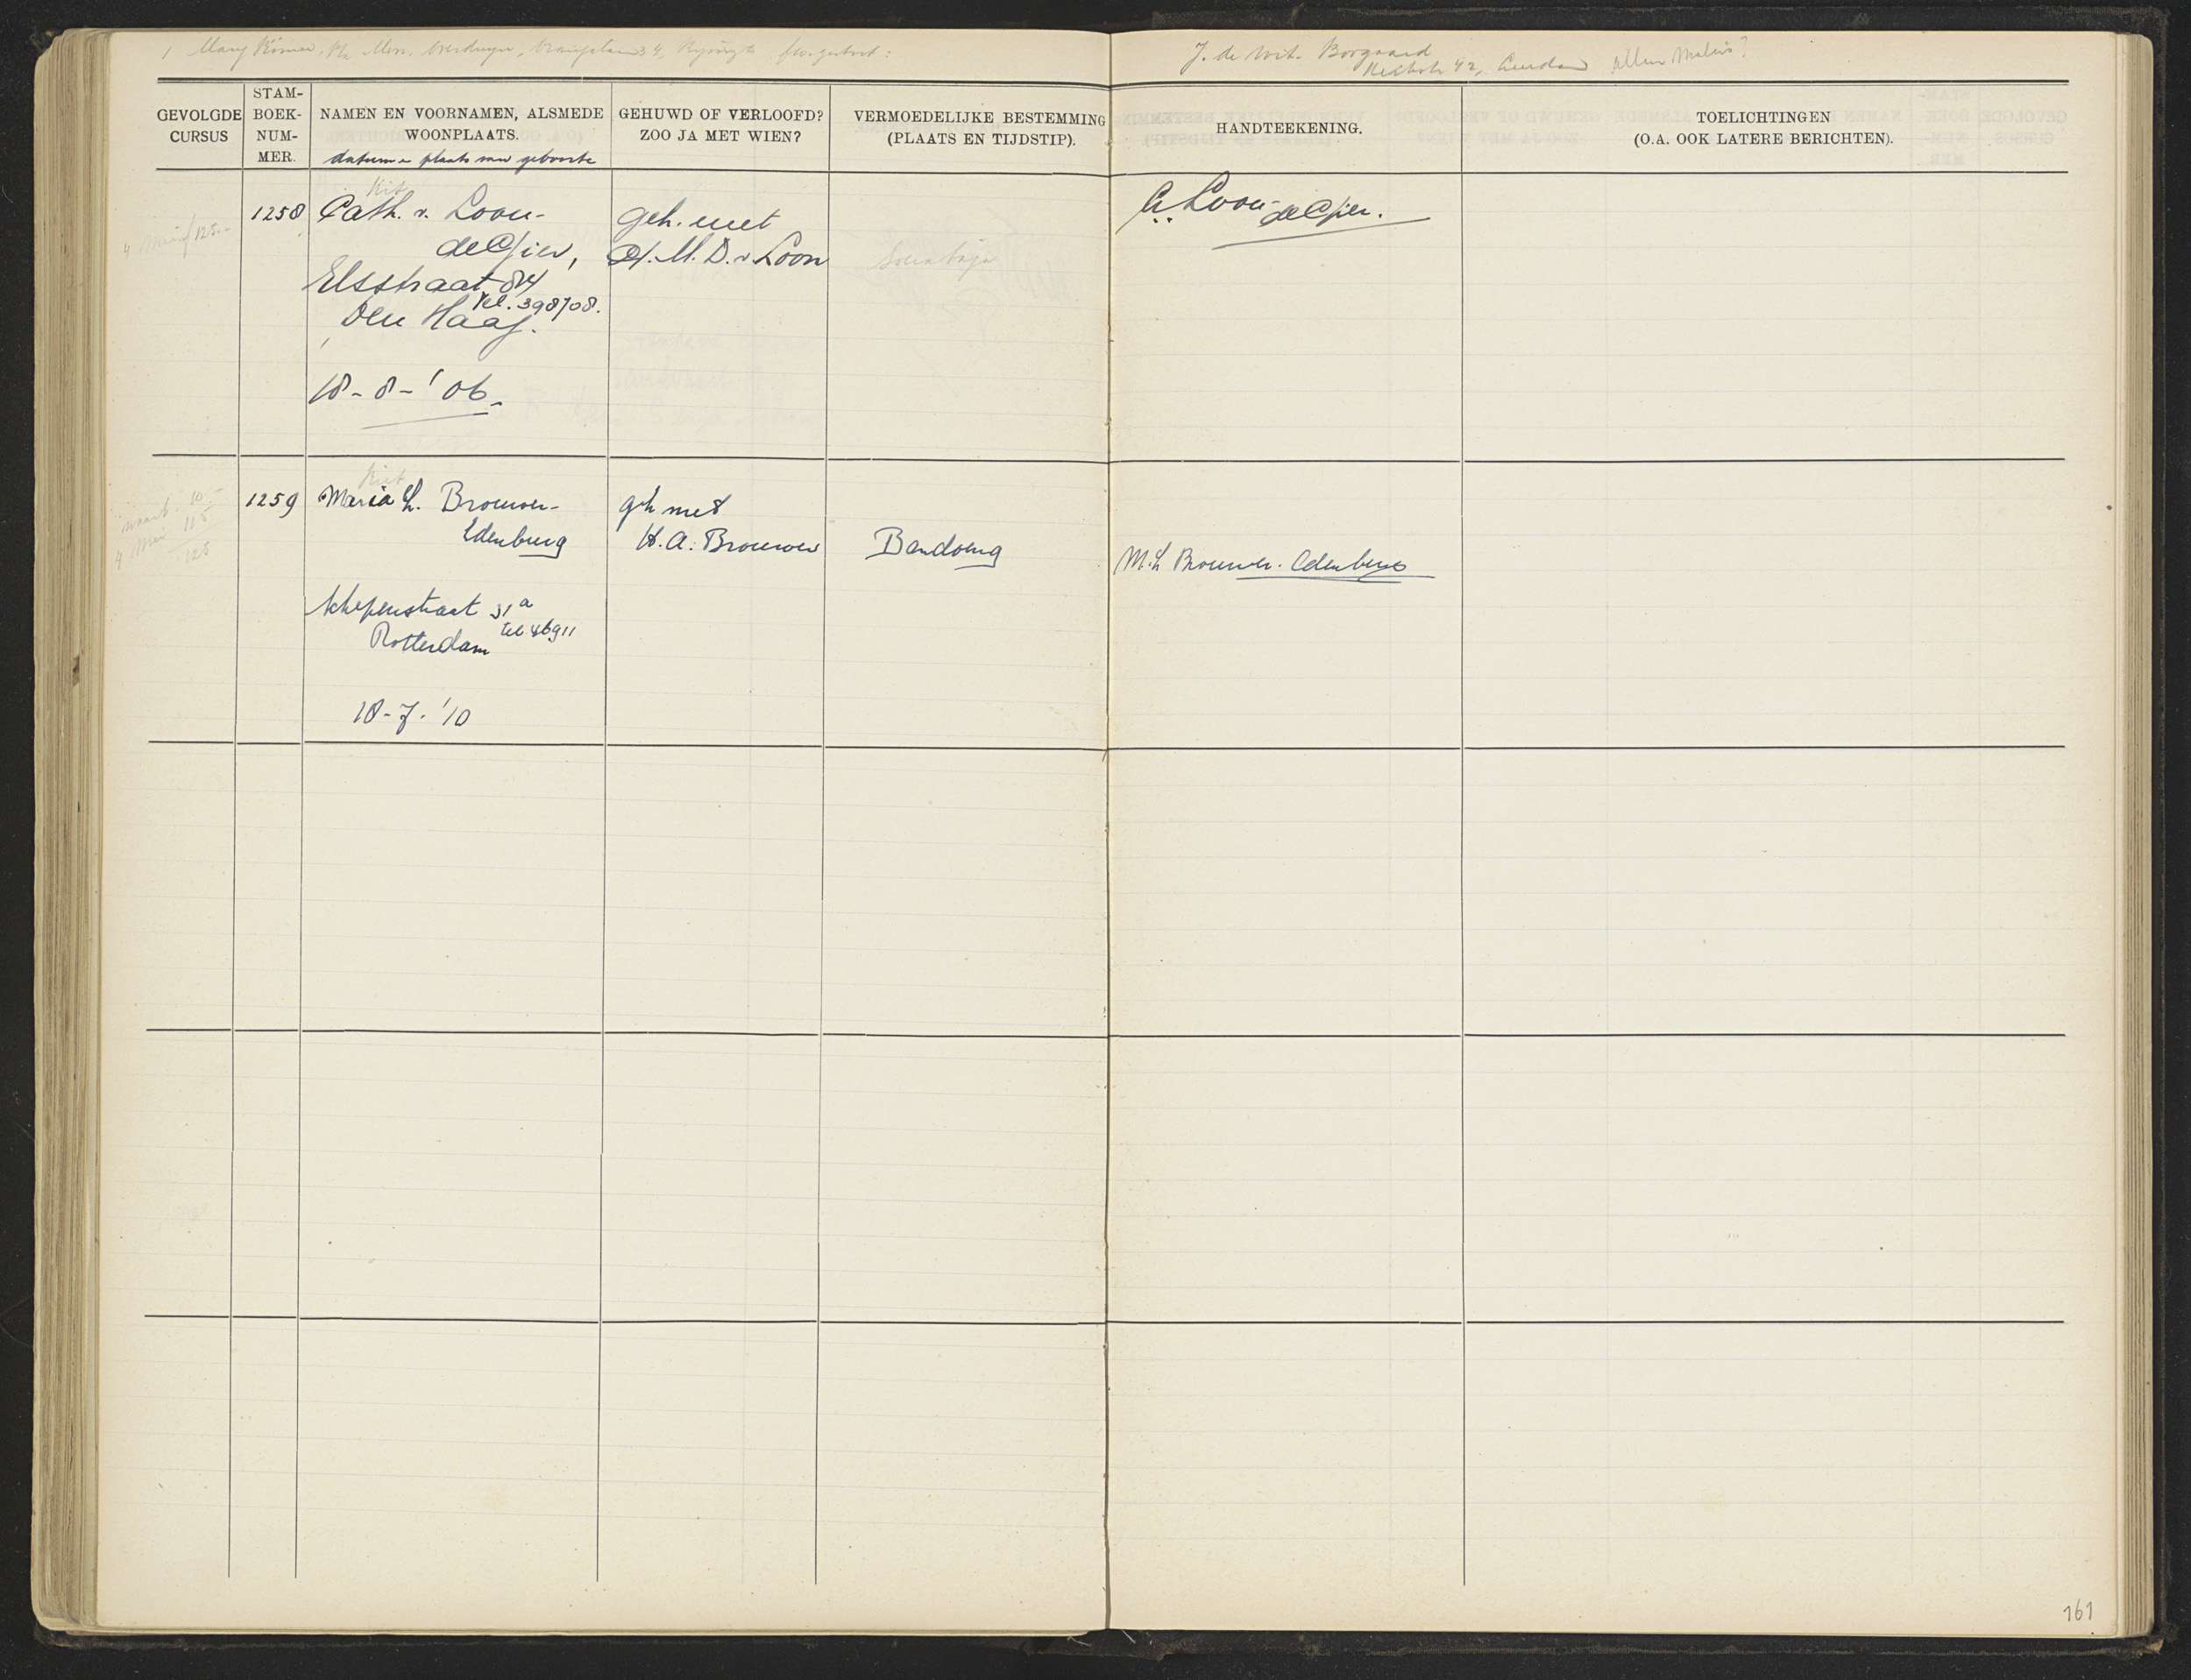 J. de Wit. Borgaard
GEVOLGDE CURSUS
STAM-BOEK-NUM-MER.
NAMEN EN VOORNAMEN, ALSMEDE WOONPLAATS.
datum en plaats van geboorte
GEHUWD OF VERLOOFD? ZOO JA MET WIEN?
VERMOEDELIJKE BESTEMMING (PLAATS EN TIJDSTIP).
HANDTEEKENING.
TOELICHTINGEN (O.A. OOK LATERE BERICHTEN).
1258
Cath. v. Loon-
de Gier,
Elsstraat 84
Tel. 398708.
Den Haag.
18-8-'06.
geh. met
M. D. v Loon
Soerabaja
Loon-de Gier.
1259
Maria L. Brouwer-
Edenburg
Schepenstraat 31a
Tel 46911
Rotterdam
18-7-'10
geh met
H. A. Brouwer
Bandoeng
M. L Brouwer. Edenburg
161